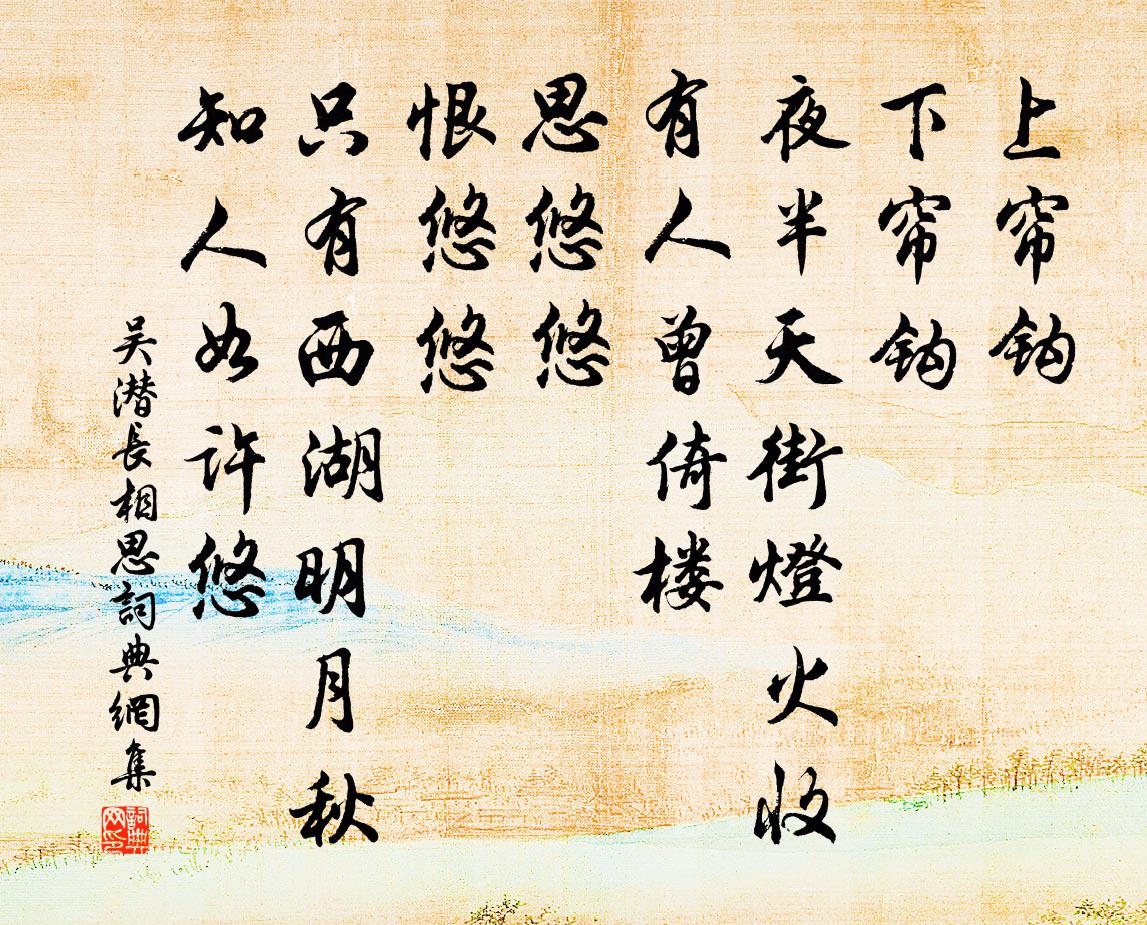 上帘钩
下帘钩
夜半天街燈火收
有人曾倚楼
思悠悠
恨悠悠
只有西湖明月秋
知人如许悠
吴潜長相思詞典網集
詞典网印